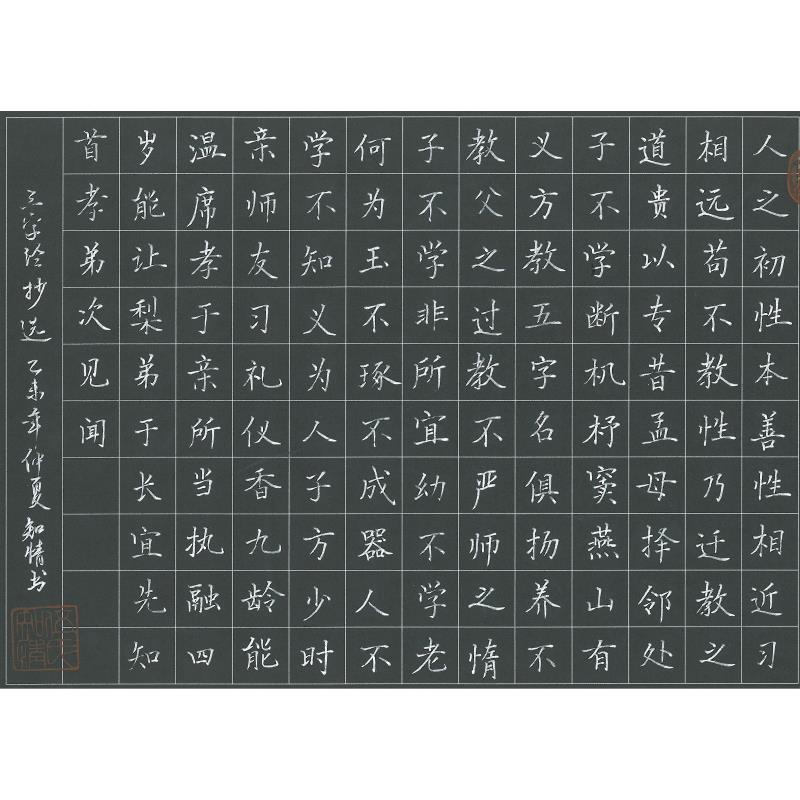 人之初性本善性相近习
相远苟不教性乃迁教之
道贵以专昔孟母择邻处
子不学断机杼窦燕山有
义方教五字名俱扬养不
教父之过教不严师之惰
子不学非所宜幼不学老
何为玉不琢不成器人不
学不知义为人子方少时
亲师友习礼仪香九龄能
温席孝于亲所当执融四
岁能让梨弟于长宜先知
首孝弟次见闻
三字经抄选 乙未年仲夏知情书